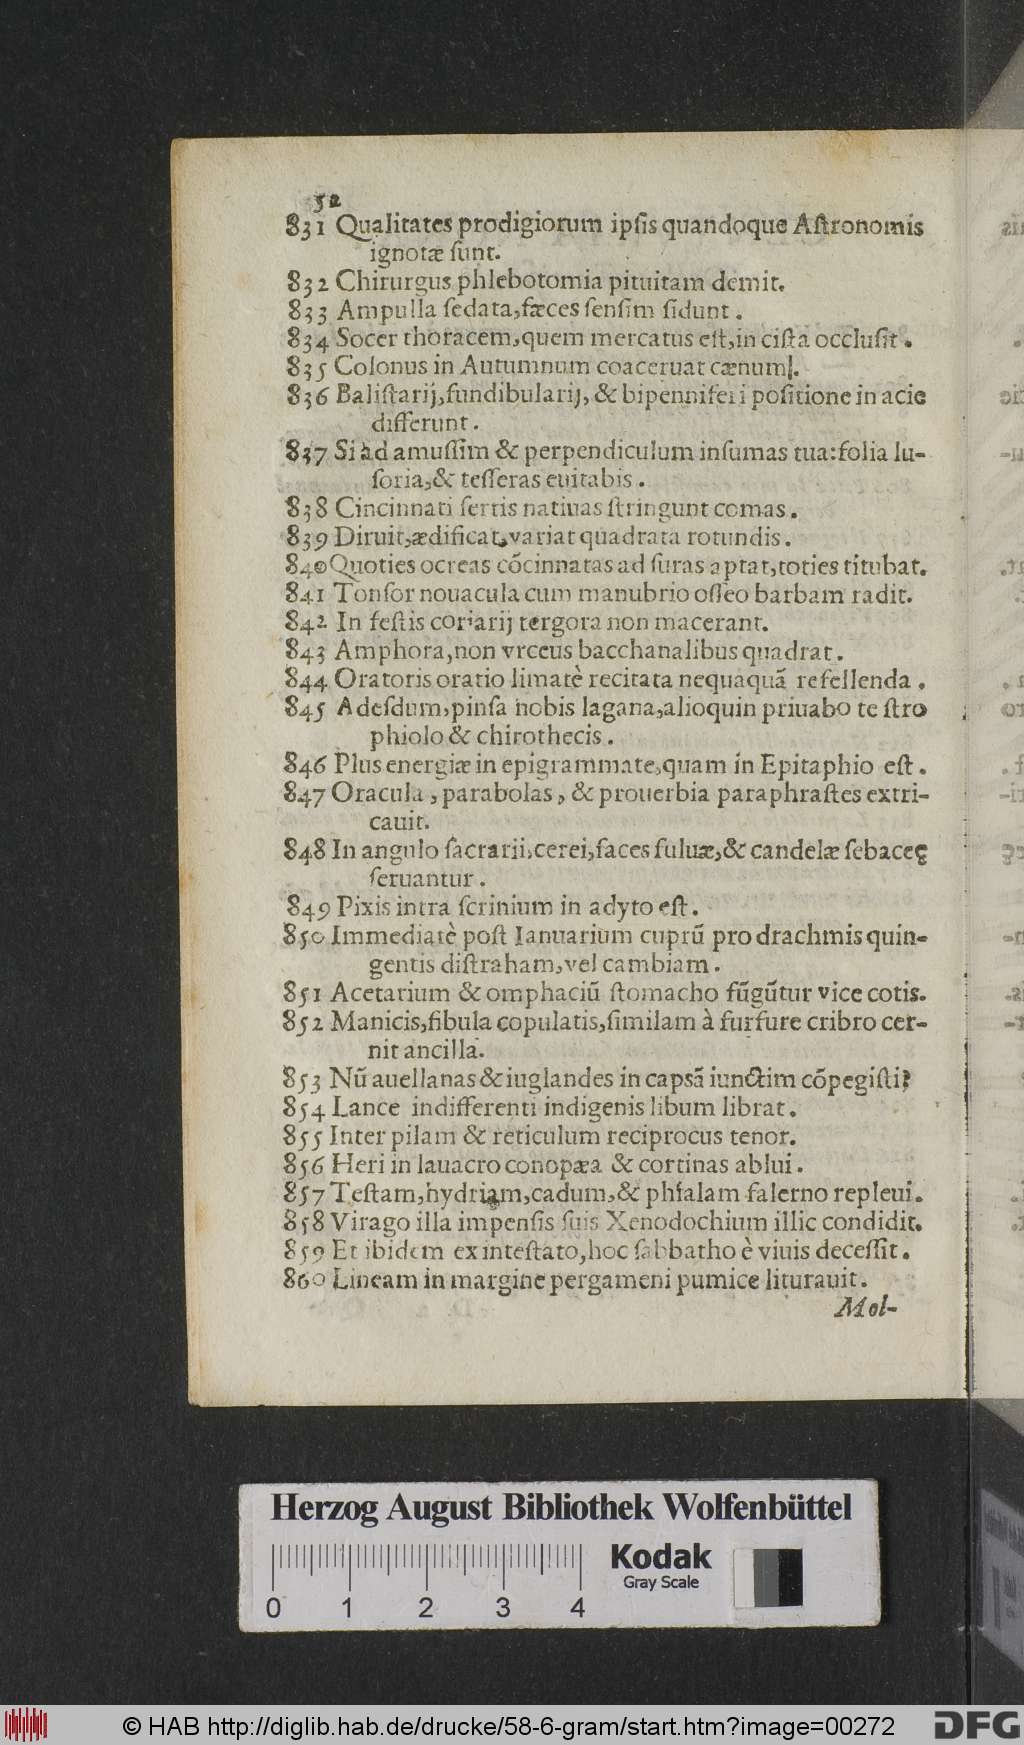 52
831 Qualitates prodigiorum ipſis quandoque Aſtronomis
ignotæ ſunt.
832 Chirurgus phlebotomia pituitam demit.
833 Ampulla ſedata, fæces ſenſim ſidunt.
834 Socer thoracem, quem mercatus eſt, in ciſta occluſit.
835 Colonus in Autumnum coaceruat cænum.
836 Baliſtarij, fundibularij, & bipenniferi poſitione in acie
differunt.
837 Si ad amuſſim & perpendiculum inſumas tua: folia lu-
ſoria, & teſſeras euitabis.
838 Cincinnati ſertis natiuas ſtringunt comas.
839 Diruit, ædificat, variat quadrata rotundis.
840 Quoties ocreas cõcinnatas ad ſuras aptat, toties titubat.
841 Tonſor nouacula cum manubrio oſſeo barbam radit.
842 In feſtis coriarij tergora non macerant.
843 Amphora, non vrceus bacchanalibus quadrat.
844 Oratoris oratio limatè recitata nequaquã refellenda.
845 Adeſdum, pinſa nobis lagana, alioquin priuabo te ſtro
phiolo & chirothecis.
846 Plus energiæ in epigrammate, quam in Epitaphio eſt.
847 Oracula, parabolas, & prouerbia paraphraſtes extri-
cauit.
848 In angulo ſacrarii, cerei, faces fuluæ, & candelæ ſebaceę
ſeruantur.
849 Pixis intra ſcrinium in adyto eſt.
850 Immediatè poſt Ianuarium cuprũ pro drachmis quin-
gentis diſtraham, vel cambiam.
851 Acetarium & omphaciũ ſtomacho fũgũtur vice cotis.
852 Manicis, fibula copulatis, ſimilam à furfure cribro cer-
nit ancilla.
853 Nũ auellanas & iuglandes in capsã iunctim cõpegiſti?
854 Lance indifferenti indigenis libum librat.
855 Inter pilam & reticulum reciprocus tenor.
856 Heri in lauacro conopæa & cortinas ablui.
857 Teſtam, hydriam, cadum, & phialam falerno repleui.
858 Virago illa impenſis ſuis Xenodochium illic condidit.
859 Et ibidem ex inteſtato, hoc ſabbatho è viuis deceſſit.
860 Lineam in margine pergameni pumice liturauit.
Mol-
Herzog August Bibliothek Wolfenbüttel
Kodak
Gray Scale
0 1 2 3 4
© HAB http://diglib.hab.de/drucke/58-6-gram/start.htm?image=00272
DFG